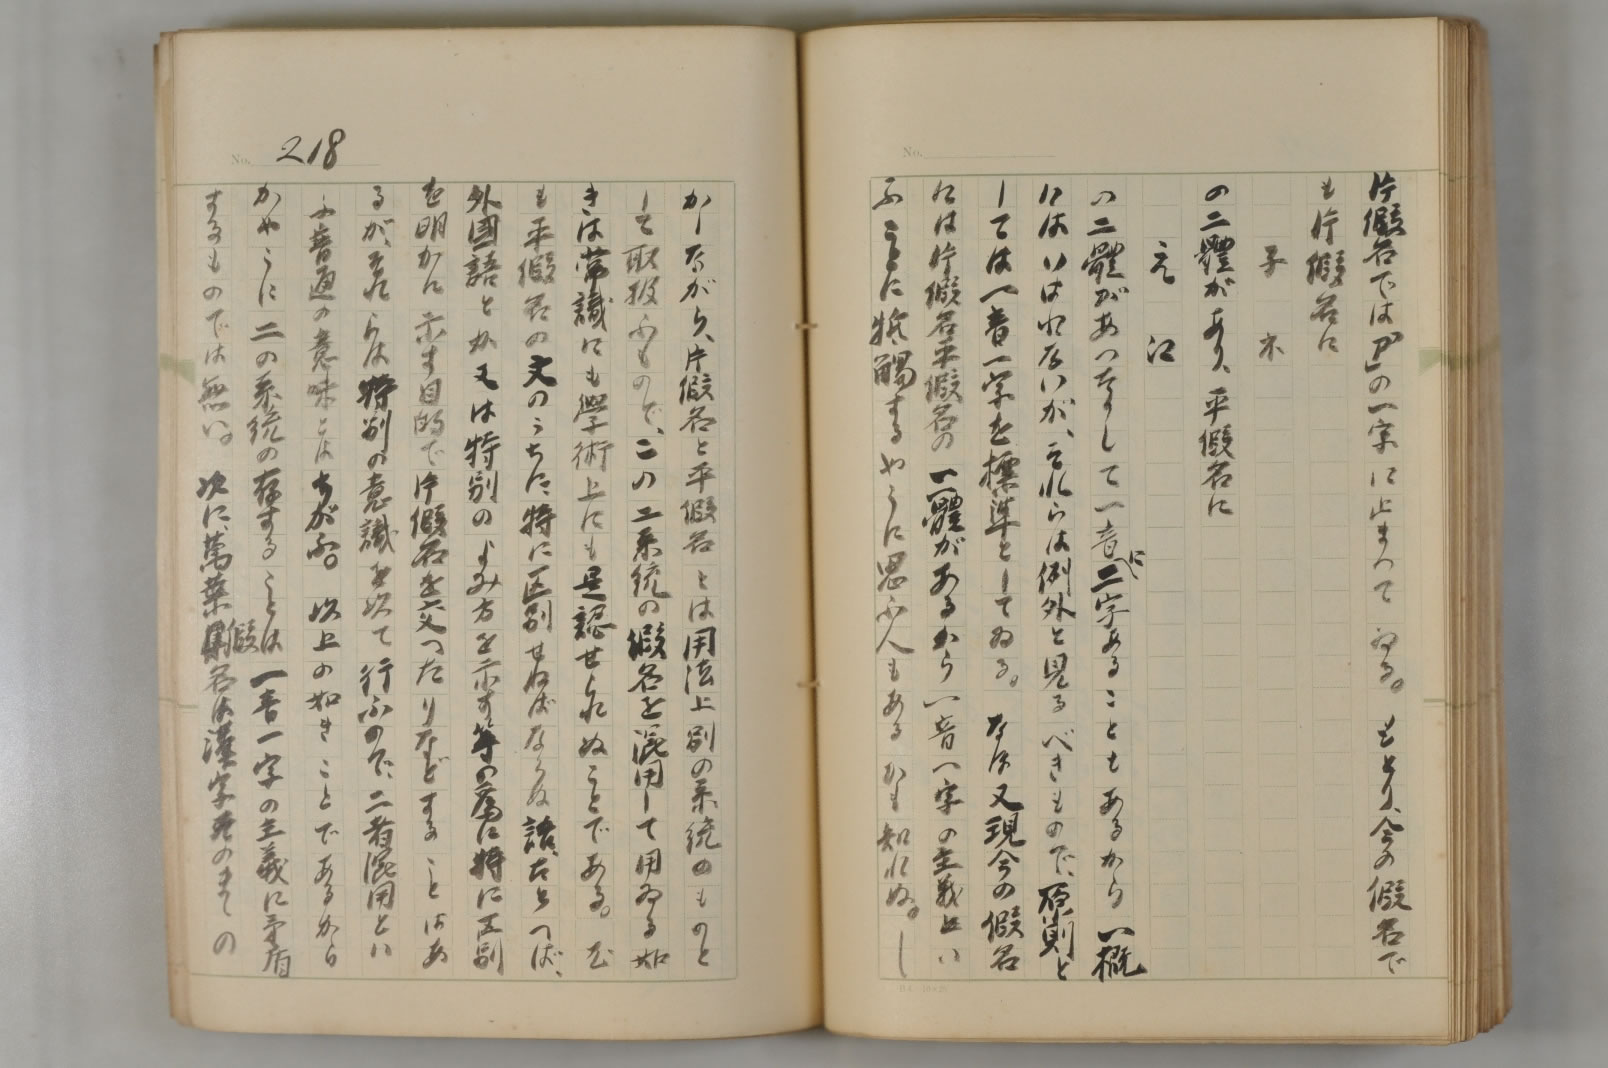 片假名では「ア」の一字に止まつてゐる。もとより、今の假名で
も片假名に
子 ネ
の二體があり、平假名に
え 江
の二體があつたりして一音に二字あることもあるから、一概
にはいはれないが、それらは例外と見るべきもので、原則と
しては一音一字を標準としてゐる。なほ又現今の假名
には片假名平假名の二體があるから一音一字の主義とい
ふことに牴觸するやうに思ふ人もあるかも知れぬ。し
No. 218
かしながら、片假名と平假名とは用法上別の系統のものと
して取扱ふもので、この二系統の假名を混用して用ゐる如
きは常識にも學術上にも是認せられぬことである。尤
も平假名の文のうちに、特に區別せねばならぬ語、たとへば、
外國語とか又は特別のよみ方を示す等の爲に特に區別
を明かに示す目的で片假名を交へたりなどすることはあ
るが、それらは特別の意識を以て行ふので、二者混用とい
ふ普通の意味とはちがふ。以上の如きことであるから
かやうに二の系統の存することは一音一字の主義に矛盾
するものでは無い。次に、萬葉假名は漢字そのまゝの